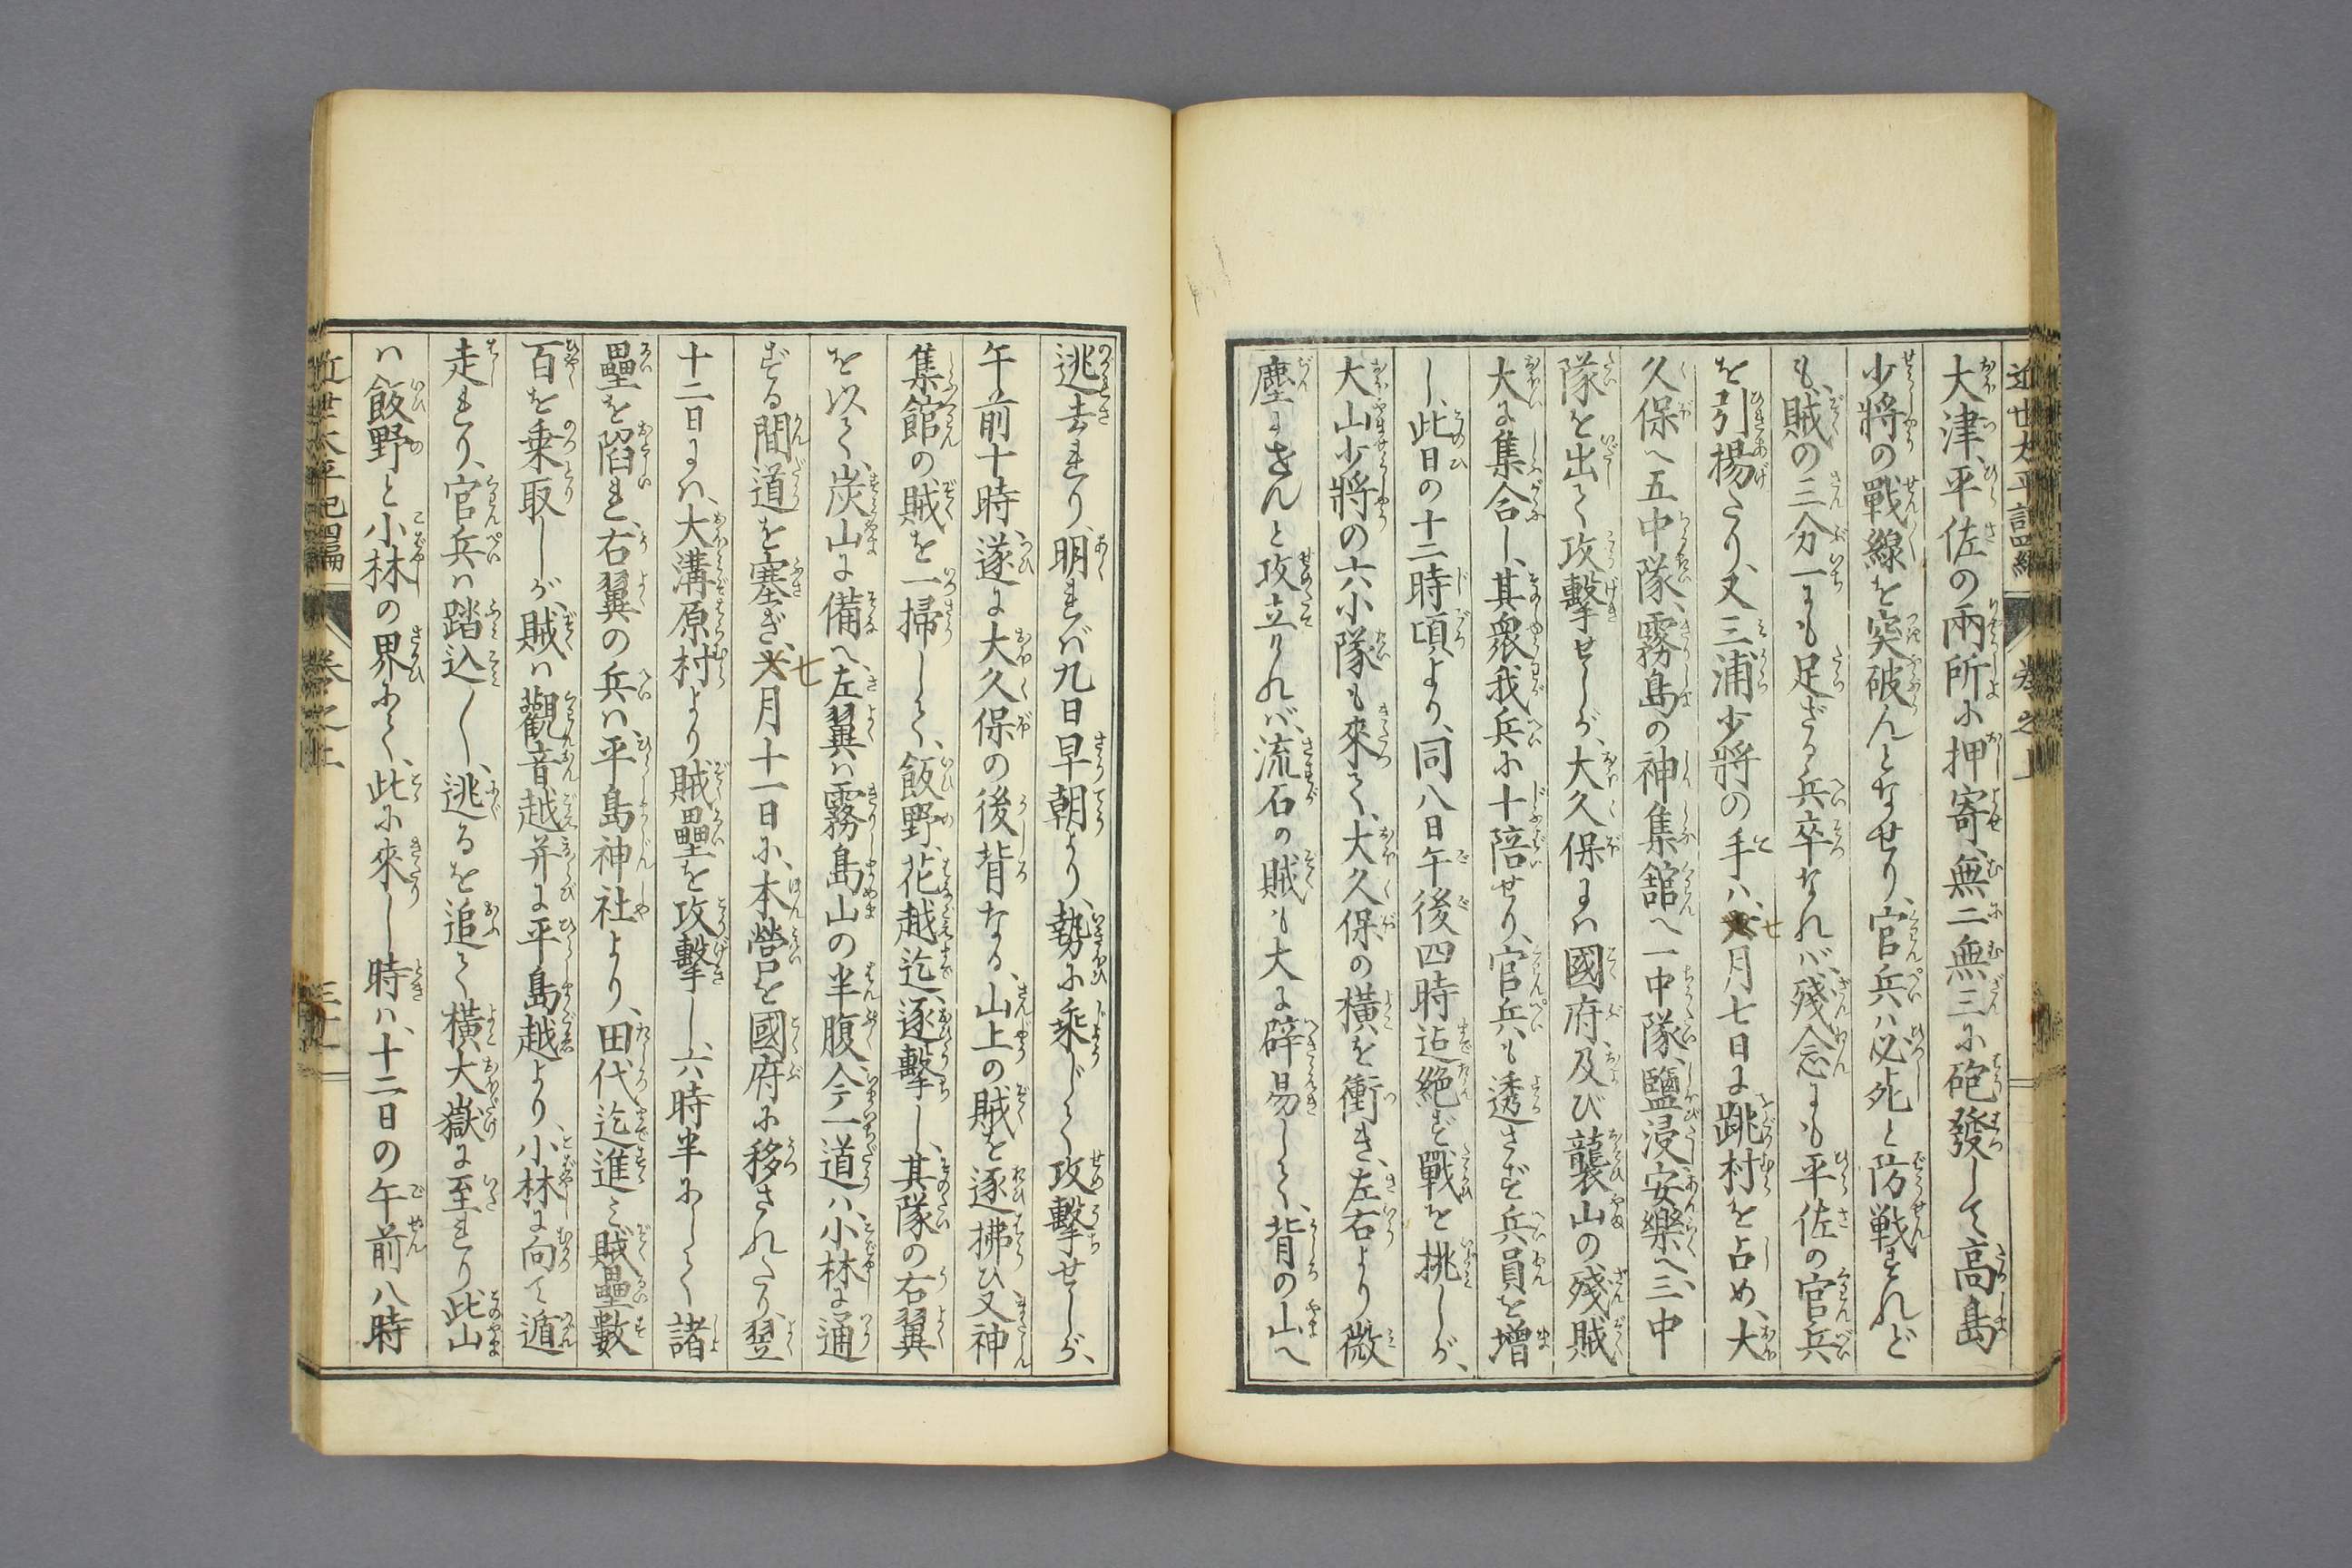 近世太平記四編 巻之上
大津、平佐の兩所ふ押寄、無二無三ふ砲發して高島
少將の戰線を突破んとなせり、官兵ハ必死と防戦すれど
も、賊の三分一にも足ざる兵卒なれバ、殘念にも平佐の官兵
を引揚たり、又三浦少將の手ハ、七月七日に跳村を占め、大
久保へ五中隊、霧島の神集舘へ一中隊、鹽浸安樂へ三中
隊を出て攻擊せしが、大久保にハ國府及び襲山の殘賊
大に集合し、其衆我兵ふ十陪せり、官兵も透さず兵員を增
し、此日の十二時頃より、同八日午後四時迠絶ず戰を挑しが、
大山少將の六小隊も來て、大久保の横を衝き、左右より微
塵にさんと攻立けれバ、流石の賊も大に辟易して、背の山へ
逃去れり、明れバ九日早朝より、勢ふ乘じて攻擊せしが、
午前十時、遂に大久保の後背なる、山上の賊を逐拂ひ、又神
集館の賊を一掃して、飯野、花越迄、逐擊し、其隊の右翼
を以て、炭山に備へ左翼ハ霧島山の半腹、今一道ハ小林に通
ずる間道を塞ぎ、七月十一日ふ、本營を國府ふ移されたり、翌
十二日にハ、大溝原村より賊壘を攻擊し、六時半ふして諸
壘を陷れ、右翼の兵ハ、平島神社より、田代迄進ミ賊壘數
百を乗取しが、賊ハ觀音越并に平島越より、小林に向て遁
走れり、官兵ハ踏込〳〵、逃るを追て横大嶽に至れり、此山
ハ飯野と小林の界ふて、此ふ來りし時ハ、十二日の午前八時
近世太平記四編 巻之上 三十一